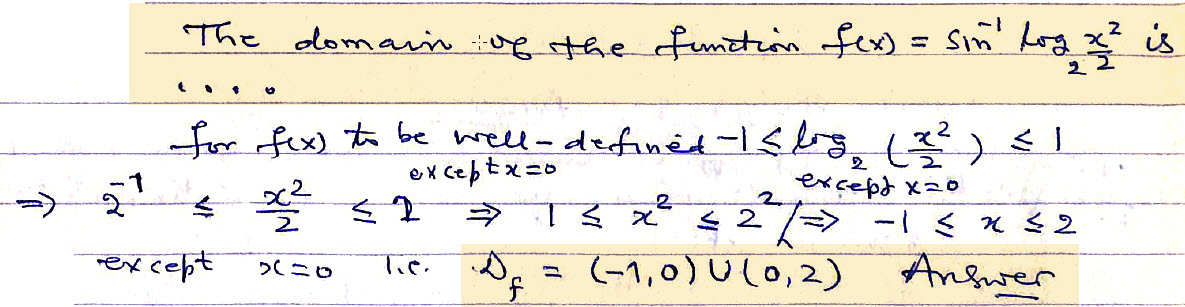 The domain of the function f(x) = Sin⁻¹ log₂ x²/2 is
....
for f(x) to be well-defined -1 ≤ log₂ (x²/2) ≤ 1
except x=0 except x=0
⇒ 2⁻¹ ≤ x²/2 ≤ 2 ⇒ 1 ≤ x² ≤ 2² / ⇒ -1 ≤ x ≤ 2
except x=0 i.e. D_f = (-1,0) ∪ (0,2) Answer